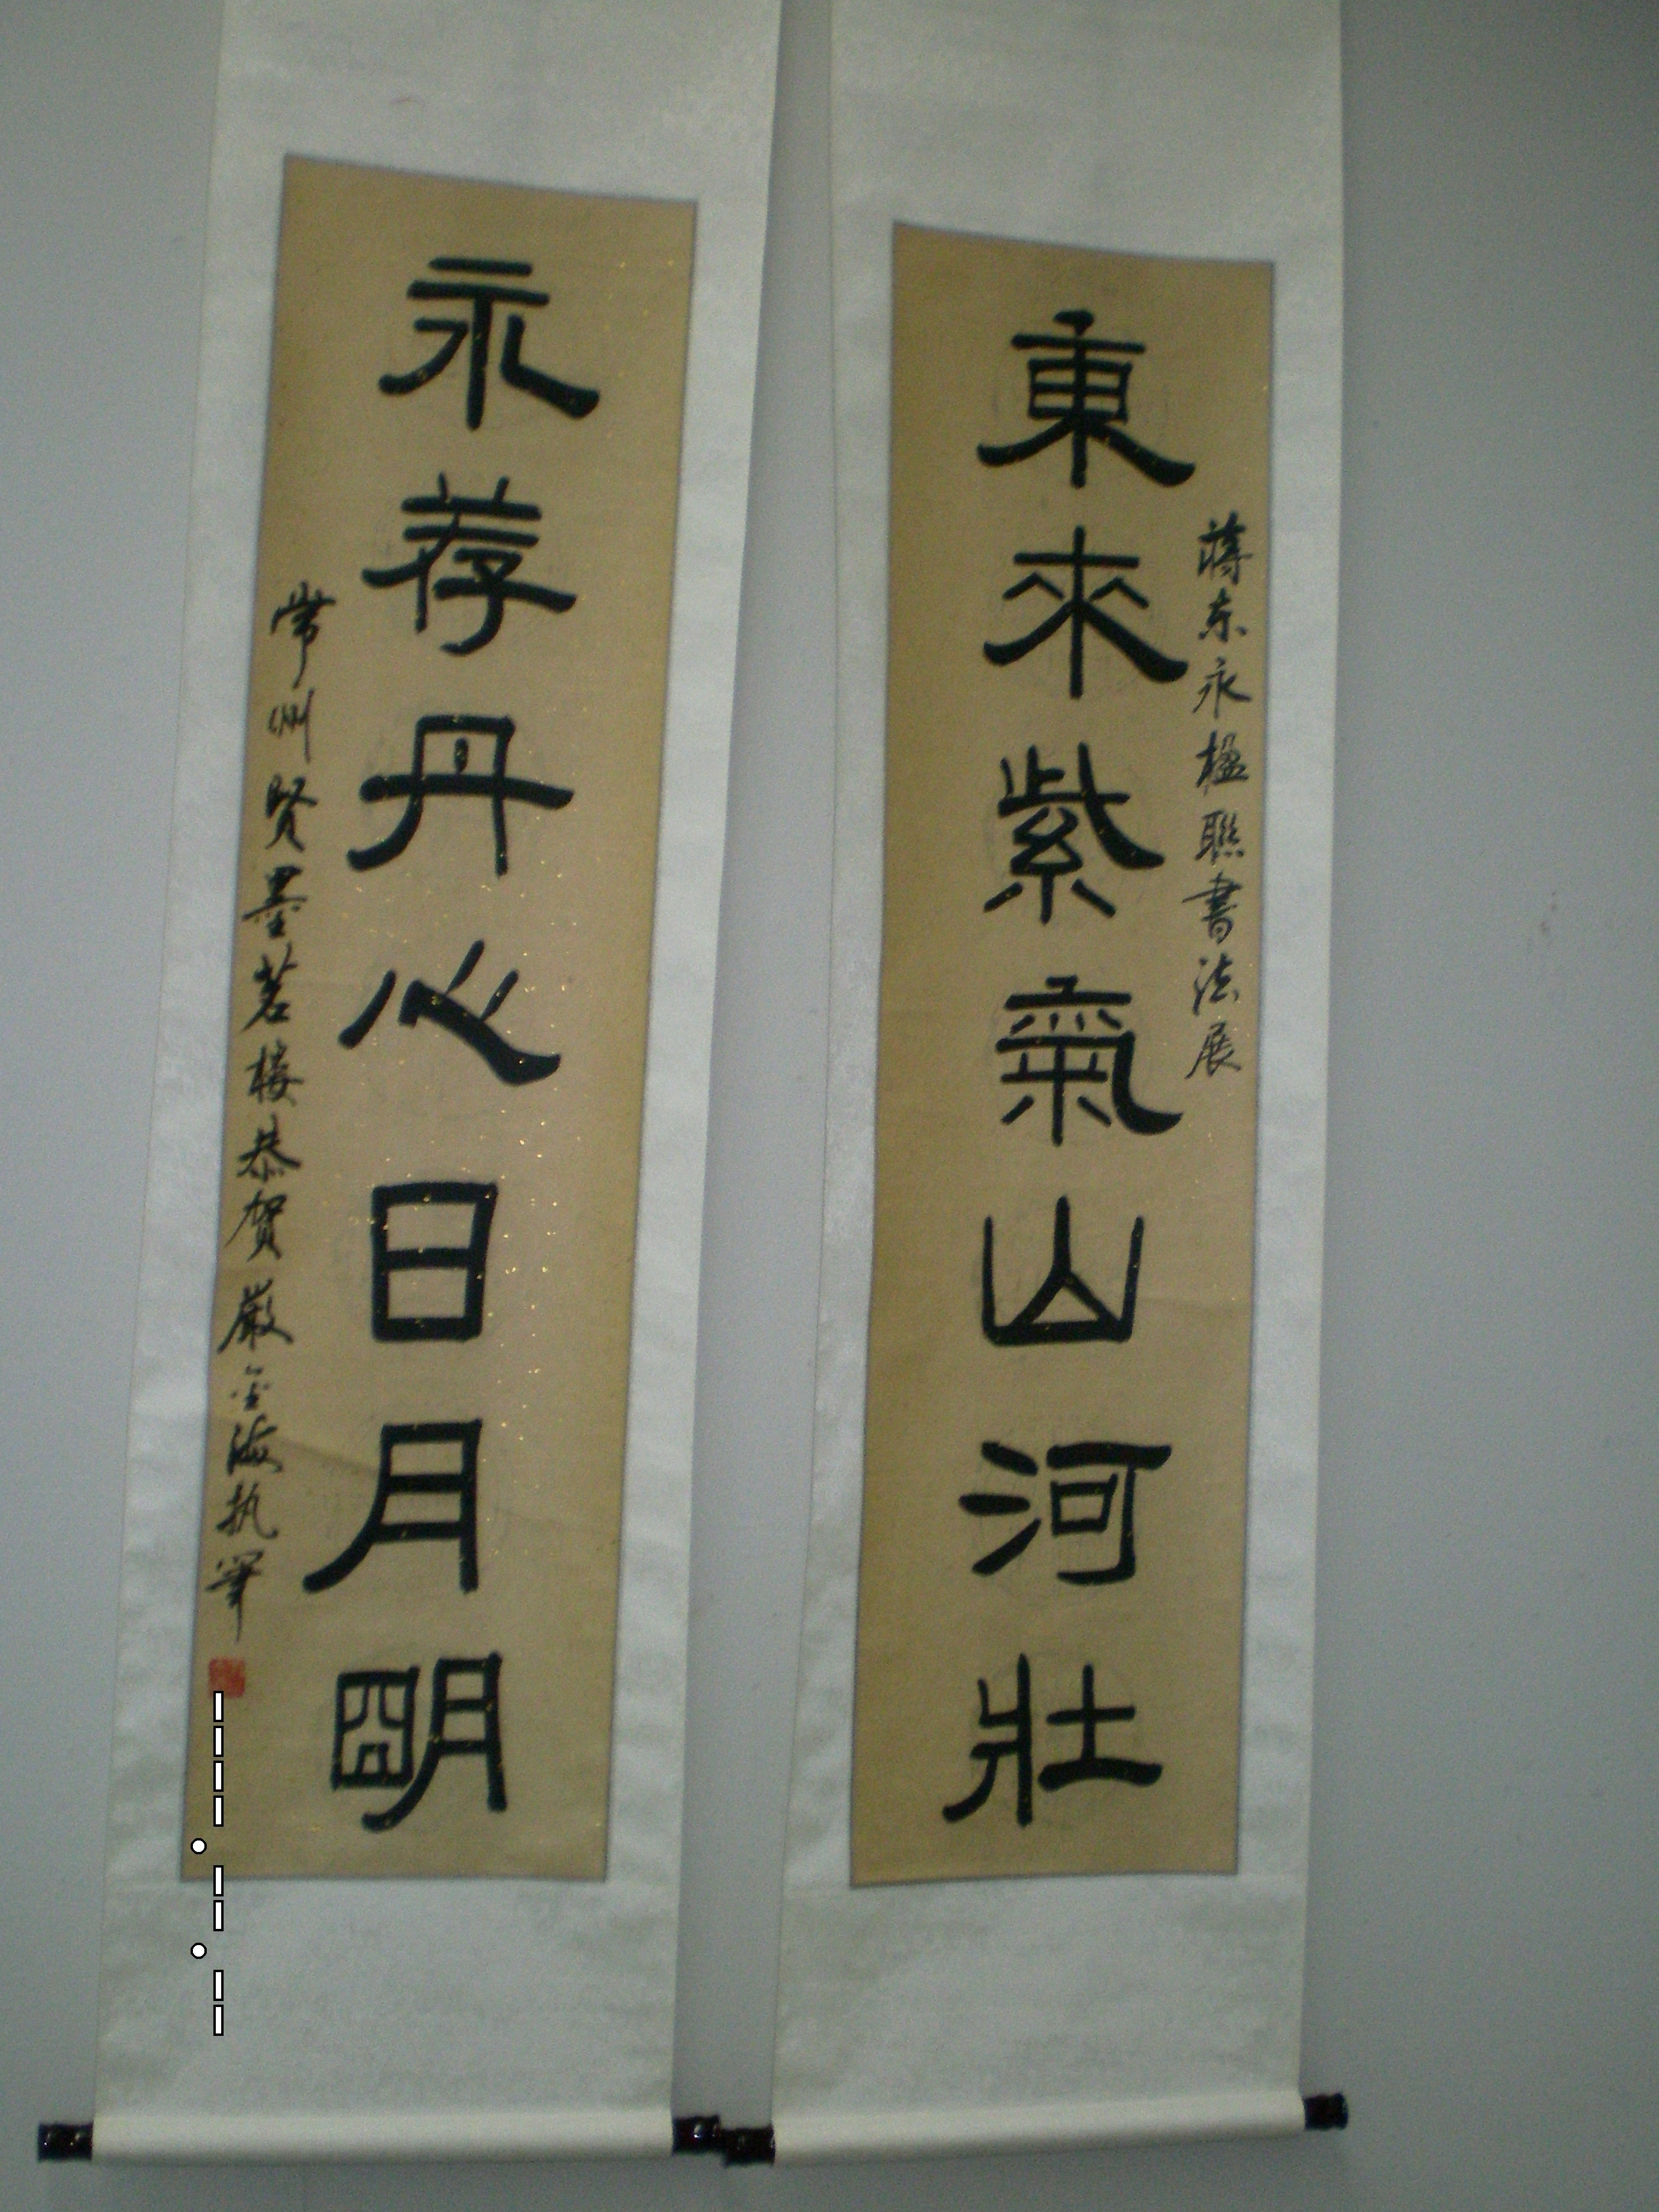 蒋东永楹聯書法展
東來紫氣山河壯
永荐丹心日月明
常州贤墨茗楼恭贺嚴金海执筆